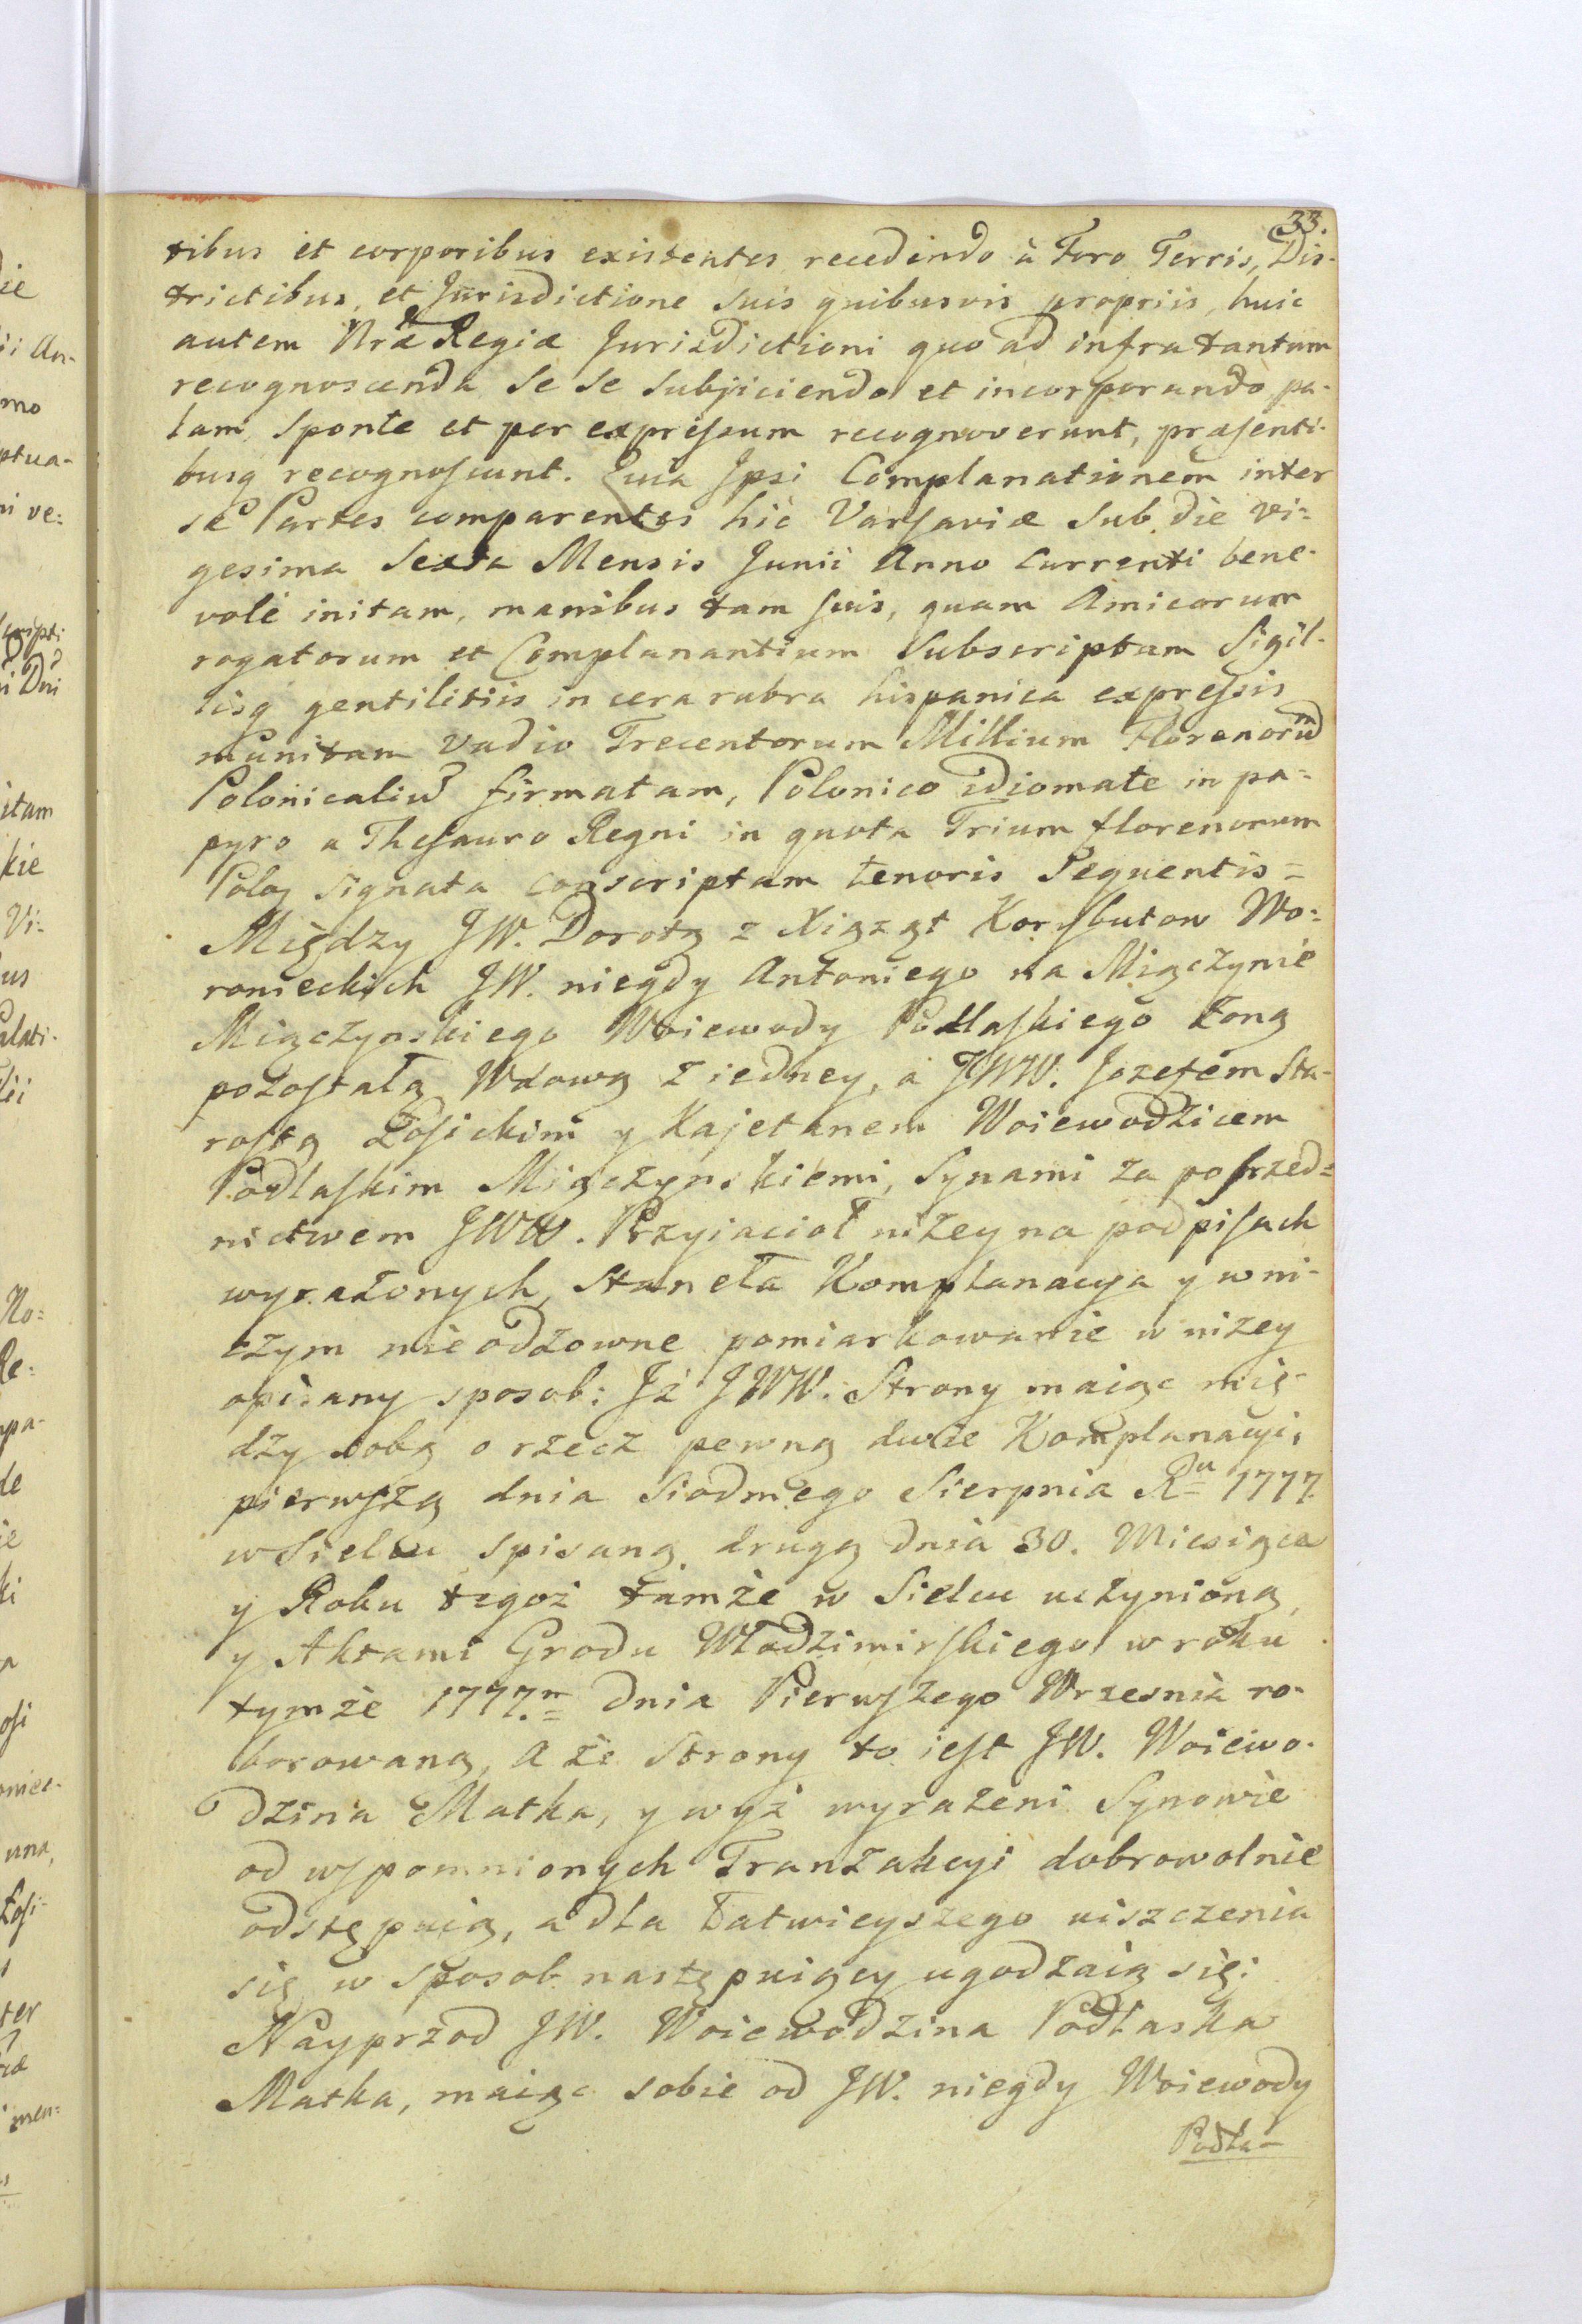 33.
tibus et corporibus existentes recedendo à Foro Terris, Dis-
trictibus, et Jurisdictione suis quibusvis propriis, huic
autem Nræ Regiæ Jurisdictioni quo ad infra tantum
recognoscenda se se subjiciendo et incorporando, pa-
lam, sponte et per expressum recognoverunt, præsenti-
busq recognoscunt. Quia Ipsi Complanationem inter
se Partes comparentes hic Varsaviæ sub die vi=
gesima Sexta Mensis Junii Anno Currenti bene-
volè initam, manibus tam suis, quam Amicorum
rogatorum et Complanantium Subscriptam Sigil-
lisq gentilitiis in cera rubra hispanica expressis
munitam Vadio Trecentorum Millium Florenorum
Polonicaliū firmatam, Polonico idiomate in pa=
pyro a Thesauro Regni in quota Trium florenorum
Poloz Signata conscriptam tenoris Sequentis =
Między JW. Dorotą z Xiążąt Korybutow Wo=
ronieckich JW. niegdy Antoniego na Miączynie
Miączynskiego Woiewody Podlaskiego Żoną
pozostałą Wdową z iedney, a JWW. Jozefem Sta-
rostą Łosickim y Kajetanem Woiewodzicem
Podlaskim Miączynskiemi, Synami za posrzed=
nictwem JWW. Przyiacioł niżey na podpisach
wyrażonych, Staneła Komplanacya y w ni-
czym nieodzowne pomiarkowanie w niżey
opisany sposob: Iż JWW. Strony maiąc mię-
dzy sobą o rzecz pewną dwie Komplanacyi,
pierwszą dnia Siodmego Sierpnia Ru 1777.
w Sielcu spisaną, drugą dnia 30. Miesiąca
y Roku tegoż tamże w Sielcu uczynioną,
y Aktami Grodu Włodzimirskiego w roku
tymże 1777. dnia Pierwszego Wrzesnia ro-
borowaną, A że Strony to iest JW. Woiewo-
dzina Matka, y wyż wyrażeni Synowie
od wspomnionych Tranzakcyi dobrowolnie
odstępuią, a dla łatwieyszego uiszczenia
się w sposob następuiący ugodzaią się:
Nayprzod JW. Woiewodzina Podlaska
Matka, maiąc sobie od JW. niegdy Woiewody
Podla-